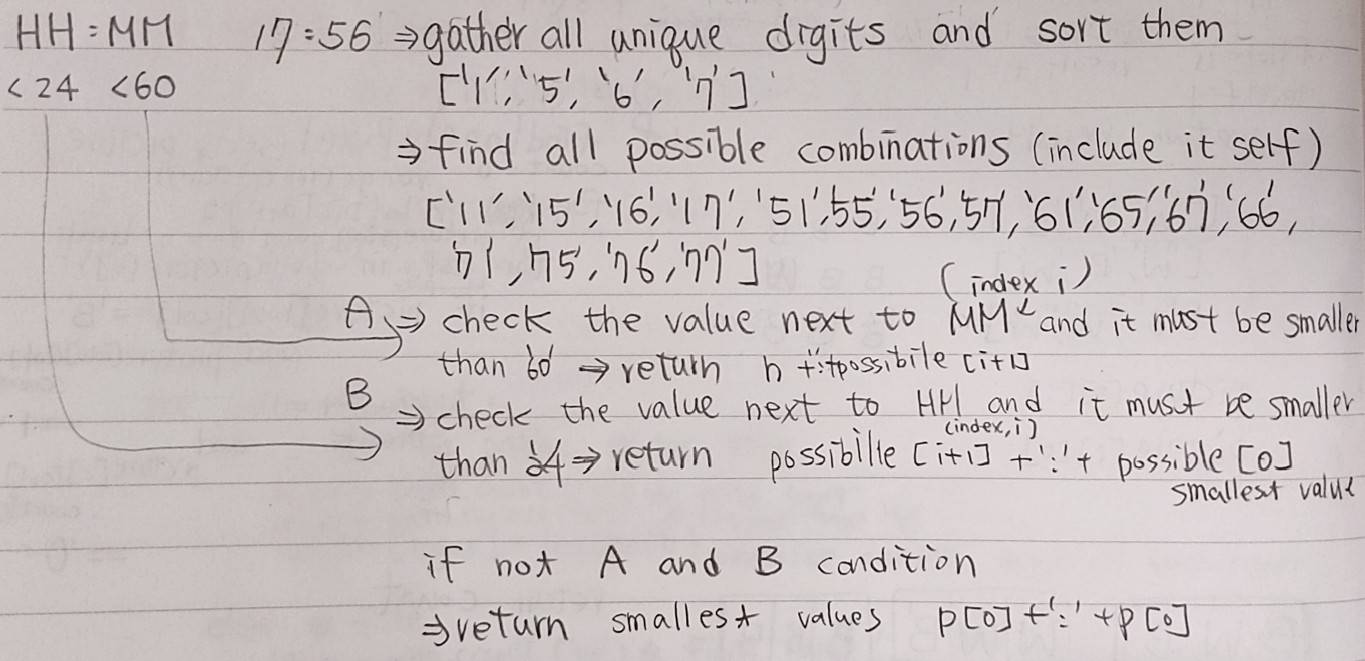 HH:MM 17:56 ⇒ gather all unique digits and sort them
<24 <60 ['1', '5', '6', '7']
⇒ find all possible combinations (include it self)
['11', '15', '16', '17', '51', 55, '56, 57, '61, '65, '67, '66,
71, 75, '76, '77']
(index i)
A ⇒ check the value next to MM and it must be smaller
than 60 → return h +':'+possibile [i+1]
B ⇒ check the value next to HH and it must be smaller
(index, i)
than 24 → return possibille [i+1] + ':' + possible [0]
smallest value
if not A and B condition
⇒ return smallest values p[0] + ':' + p[0]